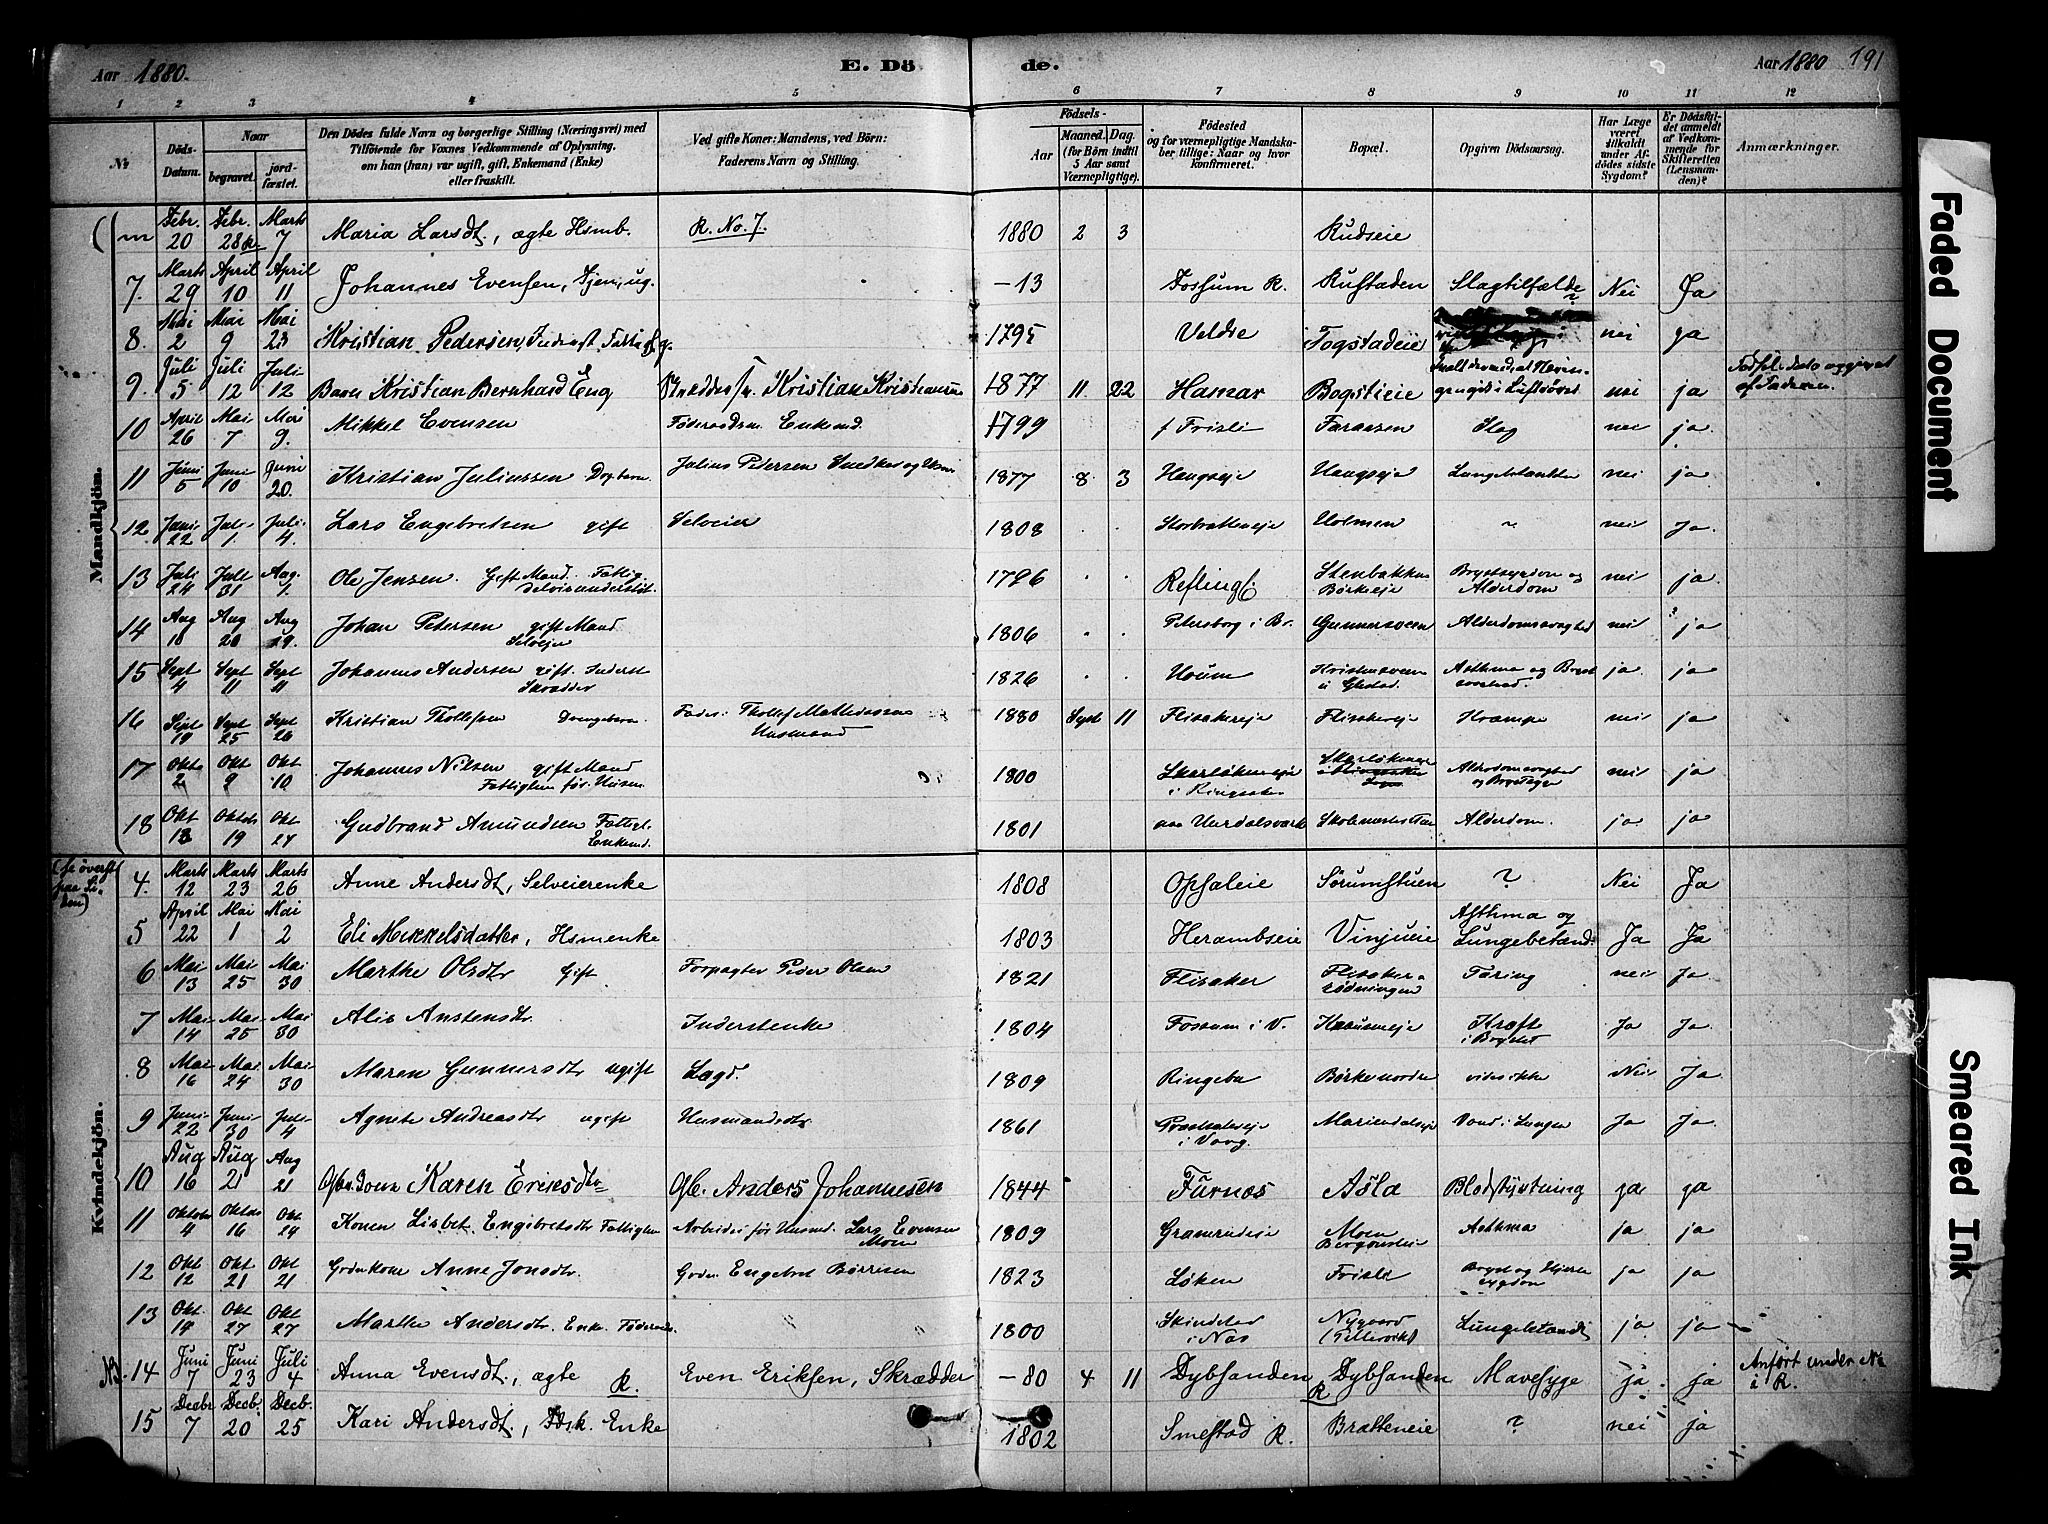 Aar 1880. E. Dö de. Aar 1880 191
1 2 3 4 5 6 7 8 9 10 11 12
№ Döds-Datum. Naar begravet. jord-fæstet. Den Dödes fulde Navn og borgerlige Stilling (Næringsvei) med Tilföiende for Voxnes Vedkommende af Oplysning, om han (hun) var ugift, gift, Enkemand (Enke) eller fraskilt. Ved gifte Koner: Mandens, ved Börn: Faderens Navn og Stilling. Födsels- Aar Maaned. Dag. (for Börn indtil 5 Aar samt Værnepligtige). Födested og for værnepligtige Mandskaber tillige: Naar og hvor konfirmeret. Bopæl. Opgiven Dödsaarsag. Har Læge været tilkaldt under Afdödes sidste Sygdom? Er Dödsfaldet anmeldt af Vedkommende for Skifteretten (Lensmanden)? Anmærkninger.
Mandkjön.
m Febr. 20 Febr. 28 Marts 7 Maria Larsdt, ægte Hsmb. R. No. 7. 1880 2 3 Rudseie
7. Marts 29 April 10 April 11 Johannes Evensen, Tjen., ug. -13 Fossum R. Rustaden Slagtilfælde ? Nei Ja
8. Mai 2 Mai 9 Mai 23 Kristian Pedersen, Inderst, 1795 Veldre Fogstadeie nei ja
9. Juli 5 Juli 12 Juli 12 Barn Kristian Bernhard Eng Kristian Kristiansen 1877 11 22 Hamar Bogstieie nei ja af Faderen.
10 April 26 Mai 7 Mai 9. Mikkel Evensen Föderaadsm. Enkemd. 1799 Frisli Faraasen Slag nei ja.
11 Juni 5 Juni 10 Juni 20. Kristian Juliussen Julius Petersen Snedker og 1877 8 3 Haugseje Haugseje Lungebetændelse nei ja.
12 Juni 22 Juli 1. Juli 4. Lars Engebretsen gift Selveier 1808 Holmen " nei Ja.
13 Juli 24 Juli 31 Aug. 1. Ole Jensen. Gift Mand. Fattig. 1796 Refling Stenbakken Börkeeje Brystsygdom og Alderdom nei ja.
14 Aug 10 Aug 20 Aug 29. Johan Petersen gift Mand Selvejer 1806 Petersborg i Br. Gunnersveen Alderdomssvaghed nei ja
15 Sept 4 Sept 11 Sept 11 Johannes Andersen gift. Inderst Skrædder 1826 Uoum Asthma og Bryst ja. ja
16 Sept 19 Sept 25 Sept 26 Kristian Thollefsen Drengebarn Fader: Thollef Mathiassen Husmand 1880 Sept 11 Flisakereje Flisakereje Krampe nei ja
17 Okt 2 Okt 9 Okt 10 Johannes Nilsen gift Mand Fattiglem för: Husm. 1800 i Ringsaker Alderdomssvaghed nei ja
18 Okt 13 Oktob 19 Okt 24 Gudbrand Amundsen Fattigl. Enkemd. 1801 paa Uurdalsværk Alderdom. ja ja
Kvindekjön.
(se överst paa Siden)
4. Marts 12 Marts 23 Marts 26 Anne Andersdt, Selveierenke 1808 Opsaleie Sörumstuen ? Nei Ja
5 April 22 Mai 1 Mai 2 Eli Mikkelsdatter, Hsmenke 1803 Herambseie Vinjueie Asthma og Lungebetænd. Ja Ja
6 Mai 13 Mai 25 Mai 30 Marthe Olsdtr Gift Forpagter Peder Olsen 1821 Flisaker Flisaker-rödningen Tæring nei Ja.
7 Mai 14 Mai 25 Mai 30 Alis Anstensdtr. Inderstenke 1804 Fossum i V. Kræft i Brystet Ja Ja.
8 Mai 16 Mai 24 Mai 30 Maren Gunnersdtr ugift Lægd. 1809 Ringebu Börke nordre vides ikke Nei Ja
9 Juni 22 Juni 30 Juli 4 Agnete Andreasdtr ugift Husmandsdtr. 1861 i Vang. Mariendalseje Vand i Lungen Ja Ja.
10 Aug 16 Aug 21 Aug 21 Karen Eriksdtr Gb. Anders Johannesen 1844 Furnæs Asla Blodstyrtning ja ja
11 Oktober 4 Oktob 16 Okt 24 Konen Lisbet Engebretsdtr Fattiglem Arbeider för Husmd. Lars Evensen Moen 1809 Moen Asthma ja ja
12 Okt 12 Okt 21 Okt 21 Gdbr Kone Anne Jonsdtr. Gdbr. Engebret Börresen 1823 Löken Frisli Bryst og Hjerte sygdom ja ja
13 Okt 19 Okt 27 Okt 27 Marthe Andersdtr. Enke 1800 Skindstad i Næs Nygaard Lungebetænd. ja. ja
NB. 14 Juni 7 Juni 23 Juli 4 Anna Evensdt., ægte R. Even Eriksen, Skrædder -80 4 11 Dybsanden Dybsanden R Mavesyge ja ja Anfört under No i R.
15 Decbr 7 Decb. 20 Decb. 25 Kari Andersdt, Enke 1802 Smestad R. Bratteneie ? nei ja
Faded Document
Smeared Ink